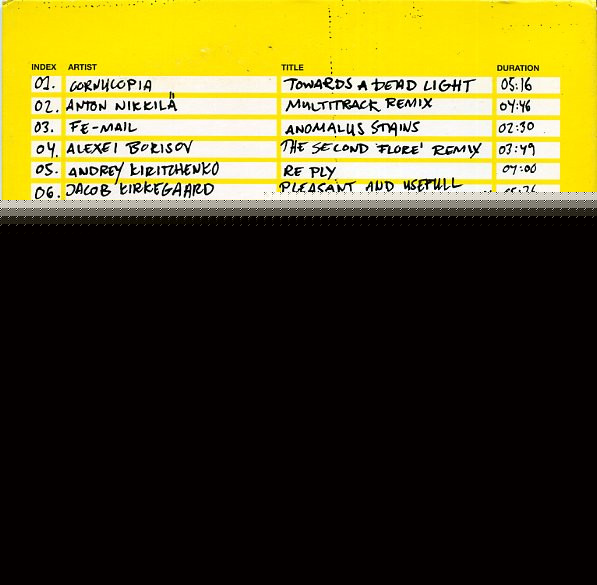 INDEX ARTIST TITLE DURATION
01. CORNUCOPIA TOWARDS A DEAD LIGHT 05:16
02. ANTON NIKKILÄ MULTITRACK REMIX 04:46
03. FE-MAIL ANOMALUS STAINS 02:30
04. ALEXEI BORISOV THE SECOND 'FLORE' REMIX 03:49
05. ANDREY KIRITCHENKO RE PLY 04:00
06. JACOB KIRKEGAARD PLEASANT AND USEFULL